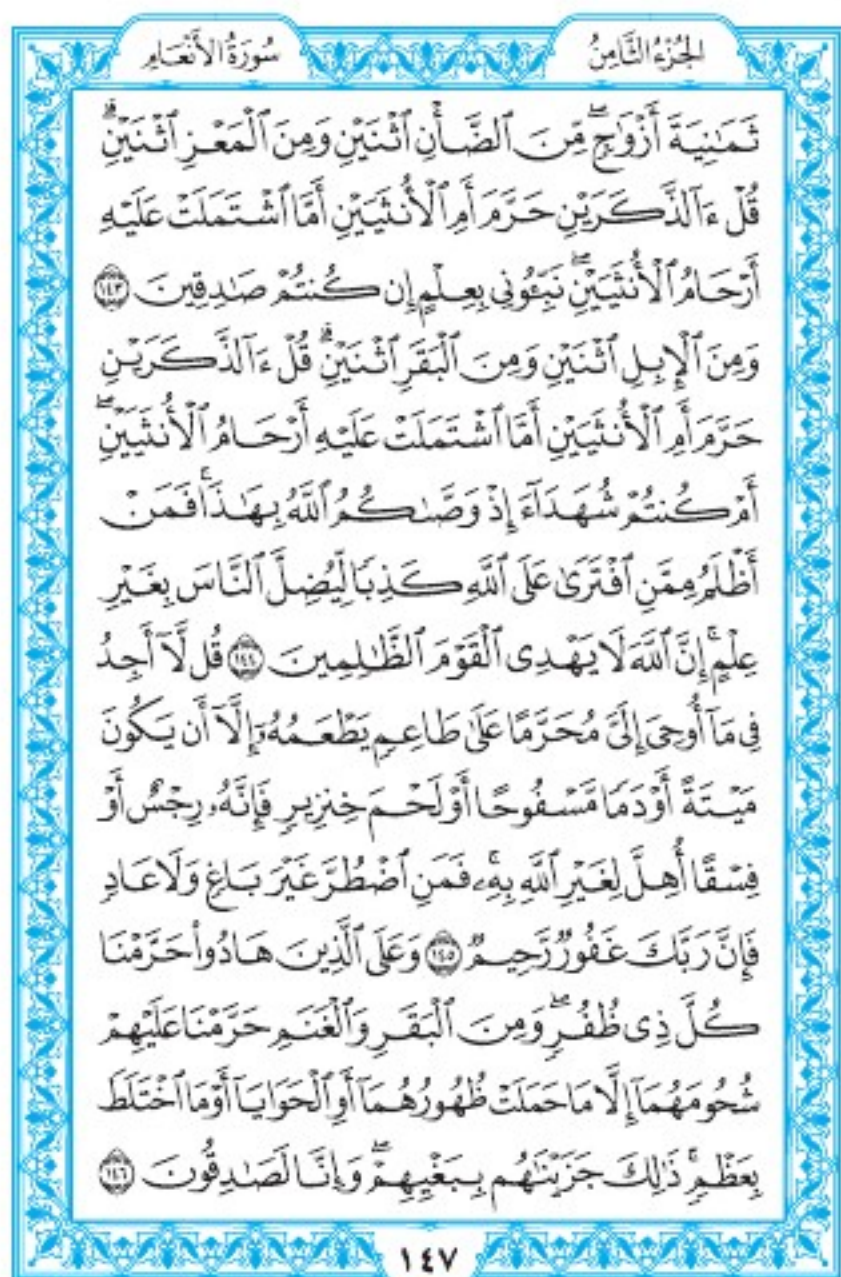 الجُزْءُ الثَّامِنُ
سُورَةُ الأَنْعَامِ
ثَمَٰنِيَةَ أَزْوَٰجٖۖ مِّنَ ٱلضَّأۡنِ ٱثۡنَيۡنِ وَمِنَ ٱلۡمَعۡزِ ٱثۡنَيۡنِۗ
قُلۡ ءَآلذَّكَرَيۡنِ حَرَّمَ أَمِ ٱلۡأُنثَيَيۡنِ أَمَّا ٱشۡتَمَلَتۡ عَلَيۡهِ
أَرۡحَامُ ٱلۡأُنثَيَيۡنِۖ نَبِّـُٔونِي بِعِلۡمٍ إِن كُنتُمۡ صَٰدِقِينَ ١٤٣
وَمِنَ ٱلۡإِبِلِ ٱثۡنَيۡنِ وَمِنَ ٱلۡبَقَرِ ٱثۡنَيۡنِۗ قُلۡ ءَآلذَّكَرَيۡنِ
حَرَّمَ أَمِ ٱلۡأُنثَيَيۡنِ أَمَّا ٱشۡتَمَلَتۡ عَلَيۡهِ أَرۡحَامُ ٱلۡأُنثَيَيۡنِۖ
أَمۡ كُنتُمۡ شُهَدَآءَ إِذۡ وَصَّىٰكُمُ ٱللَّهُ بِهَٰذَاۚ فَمَنۡ
أَظۡلَمُ مِمَّنِ ٱفۡتَرَىٰ عَلَى ٱللَّهِ كَذِبٗا لِّيُضِلَّ ٱلنَّاسَ بِغَيۡرِ
عِلۡمٍۚ إِنَّ ٱللَّهَ لَا يَهۡدِي ٱلۡقَوۡمَ ٱلظَّٰلِمِينَ ١٤٤ قُل لَّآ أَجِدُ
فِي مَآ أُوحِيَ إِلَيَّ مُحَرَّمًا عَلَىٰ طَاعِمٖ يَطۡعَمُهُۥٓ إِلَّآ أَن يَكُونَ
مَيۡتَةً أَوۡ دَمٗا مَّسۡفُوحًا أَوۡ لَحۡمَ خِنزِيرٖ فَإِنَّهُۥ رِجۡسٌ أَوۡ
فِسۡقًا أُهِلَّ لِغَيۡرِ ٱللَّهِ بِهِۦۚ فَمَنِ ٱضۡطُرَّ غَيۡرَ بَاغٖ وَلَا عَادٖ
فَإِنَّ رَبَّكَ غَفُورٞ رَّحِيمٞ ١٤٥ وَعَلَى ٱلَّذِينَ هَادُواْ حَرَّمۡنَا
كُلَّ ذِي ظُفُرٖۖ وَمِنَ ٱلۡبَقَرِ وَٱلۡغَنَمِ حَرَّمۡنَا عَلَيۡهِمۡ
شُحُومَهُمَآ إِلَّا مَا حَمَلَتۡ ظُهُورُهُمَآ أَوِ ٱلۡحَوَايَآ أَوۡ مَا ٱخۡتَلَطَ
بِعَظۡمٖۚ ذَٰلِكَ جَزَيۡنَٰهُم بِبَغۡيِهِمۡۖ وَإِنَّا لَصَٰدِقُونَ ١٤٦
١٤٧